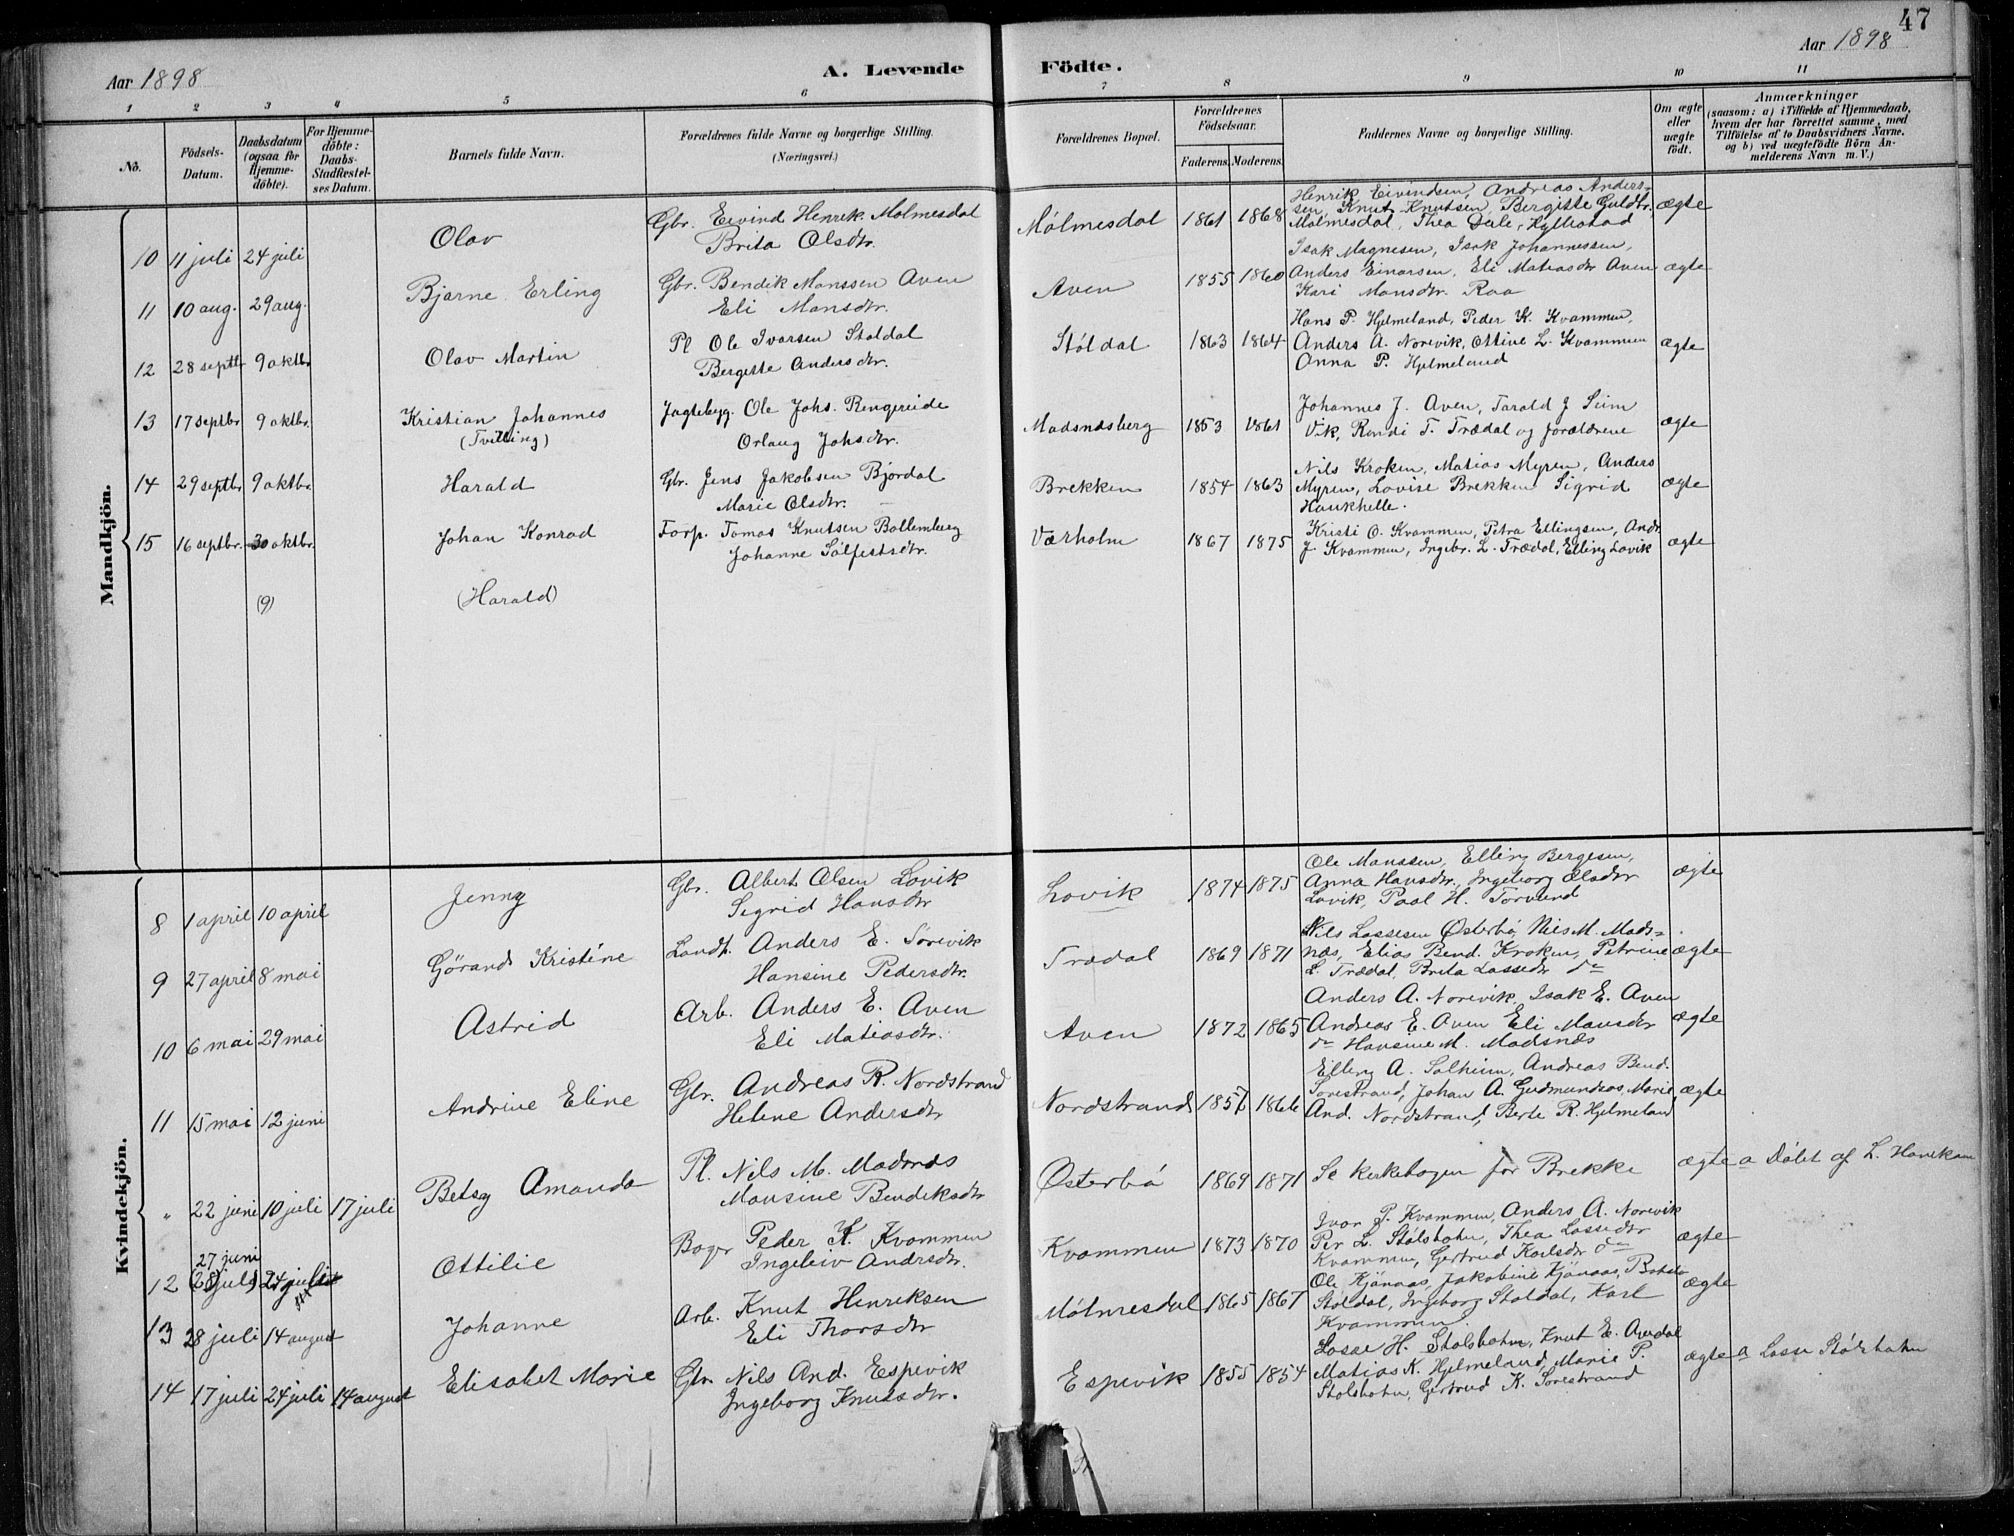 47
Aar 1898
A. Levende Födte.
Aar 1898
1 2 3 4 5 6 7 8 9 10 11
No.
Födsels-Datum.
Daabsdatum (ogsaa for Hjemmedöbte).
For Hjemmedöbte: Daabs-Stadfæstelses Datum.
Barnets fulde Navn.
Forældrenes fulde Navne og borgerlige Stilling. (Næringsvei.)
Forældrenes Bopæl.
Forældrenes Födselsaar.
Faderens. Moderens.
Faddernes Navne og borgerlige Stilling.
Om ægte eller uægte födt.
Anmærkninger
(saasom: a) i Tilfælde af Hjemmedaab, hvem der har forrettet samme, med Tilföielse af to Daabsvidners Navne, og b) ved uægtefödte Börn Anmelderens Navn m. V.)
Mandkjön.
10 11 juli 24 juli Olav
Gbr. Eivind Henrik. Molmesdal
Brita Olsdtr.
Mólmesdal 1861 1868
Henrik Eivindsen, Andreas Anders-
sen, Knut Knutsen, Bergitte Guldbr.
Molmesdal, Thea Dale, Hyllestad
ægte
11 10 aug. 29 aug. Bjarne Erling
Gbr. Bendik Monssen Aven
Eli Monsdtr.
Aven 1855 1860
Isak Magnesen, Isak Johannessen,
Anders Einarsen, Eli Matiasdtr Aven
Kari Monsdtr. Raa
ægte
12 28 septbr 9 oktbr. Olav Martin
Pl Ole Ivarsen Stoldal
Bergitte Andersdtr.
Stöldal 1863 1864
Hans P. Hjelmeland, Peder K. Kvammen,
Anders A. Norevik, Ottine L. Kvammen
Anna P. Hjelmeland
ægte
13 17 septbr. 9 oktbr. Kristian Johannes
(Tvilling)
Jagtebyg. Ole Johs. Rengereide
Orlaug Johsdtr.
Madsnæsberg 1853 1861
Johannes J. Aven, Tarald J Seim
Vik, Randi T. Trædal og forældrene
ægte
14 29 septbr 9 oktbr Harald
Gbr. Jens Jakobsen Bjordal
Marie Olsdtr.
Brekken 1854 1863
Nils Kroken, Matias Myren, Anders
Myren, Lovise Brekken Sigrid
Haukhelle.
ægte
15 16 septbr. 30 oktbr. Johan Konrad
Forp. Tomas Knutsen Bollemberg
Johanne Sölfestsdtr.
Værholm 1867 1875
Kristi O. Kvammen, Petra Ellingsen, Andr.
J. Kvammen, Ingebr. L. Trædal, Elling Lovik
ægte
(9) (Harald)
Kvindekjön.
8 1 april 10 april Jenny
Gbr. Albert Olsen Lovik
Sigrid Hansdtr
Lovik 1874 1875
Ole Monssen, Elling Bergesen,
Anna Hansdtr., Ingeborg Olsdtr
Lovik, Paal H. Torvund
ægte
9 27 april 8 mai Görand Kristine
Landh. Anders E. Sörevik
Hansine Pedersdtr.
Trædal 1869 1871
Nils Lassesen Østerbö, Nils M. Mads-
næs, Elias Bend. Kroken, Petrine
L. Trædal, Brita Lassedtr do
ægte
10 6 mai 29 mai Astrid
Arb. Anders E. Aven
Eli Matiasdtr.
Aven 1872 1865
Anders A. Norevik, Isak E. Aven
Andreas E. Aven Eli Monsdtr
do Hansine M. Madsnæs
ægte
11 15 mai 12 juni Andrine Eline
Gbr. Andreas R. Nordstrand
Helene Andersdtr
Nordstrand 1856 1866
Elling A. Solheim, Andreas Bend.
Sorestrand, Johan A. Gudmundsos, Marie
And. Nordstrand, Berte R. Hjelmeland
ægte
" 22 juni 10 juli 17 juli Betsy Amanda
Pl. Nils M. Madsnæs
Monsine Bendiksdtr
Østerbó 1869 1871
Se kirkebogen for Brekke
ægte a Dóbt af L. Havekam
27 juni
12 (28 juli) 24 juli Ottilie
Bager Peder K. Kvammen
Ingeleiv Andrsdtr.
Kvammen 1873 1870
Ivar P. Kvammen, Anders A. Norevik
Per L. Stölsholm, Thea Lassedtr
Kvammen, Gertrud Karlsdtr do
ægte
13 28 juli 14 august Johanne
Arb. Knut Henriksen
Eli Thorsdtr
Mólmesdal 1865 1867
Ole Kjönaas, Jakobine Kjönaas,
Stoldal, Ingeborg Stoldal, Karl
Kvammen.
ægte
14 17 juli 24 juli 14 august Elisabet Marie
Gbr. Nils And. Espevik
Ingeborg Knutsdtr.
Espevik 1855 1854
Lasse H. Stolsholm, Knut E. Avedal
Matias K. Hjelmeland, Marie P.
Stolsholm, Gertrud K. Sorestrand
ægte a Lasse Stölsholm